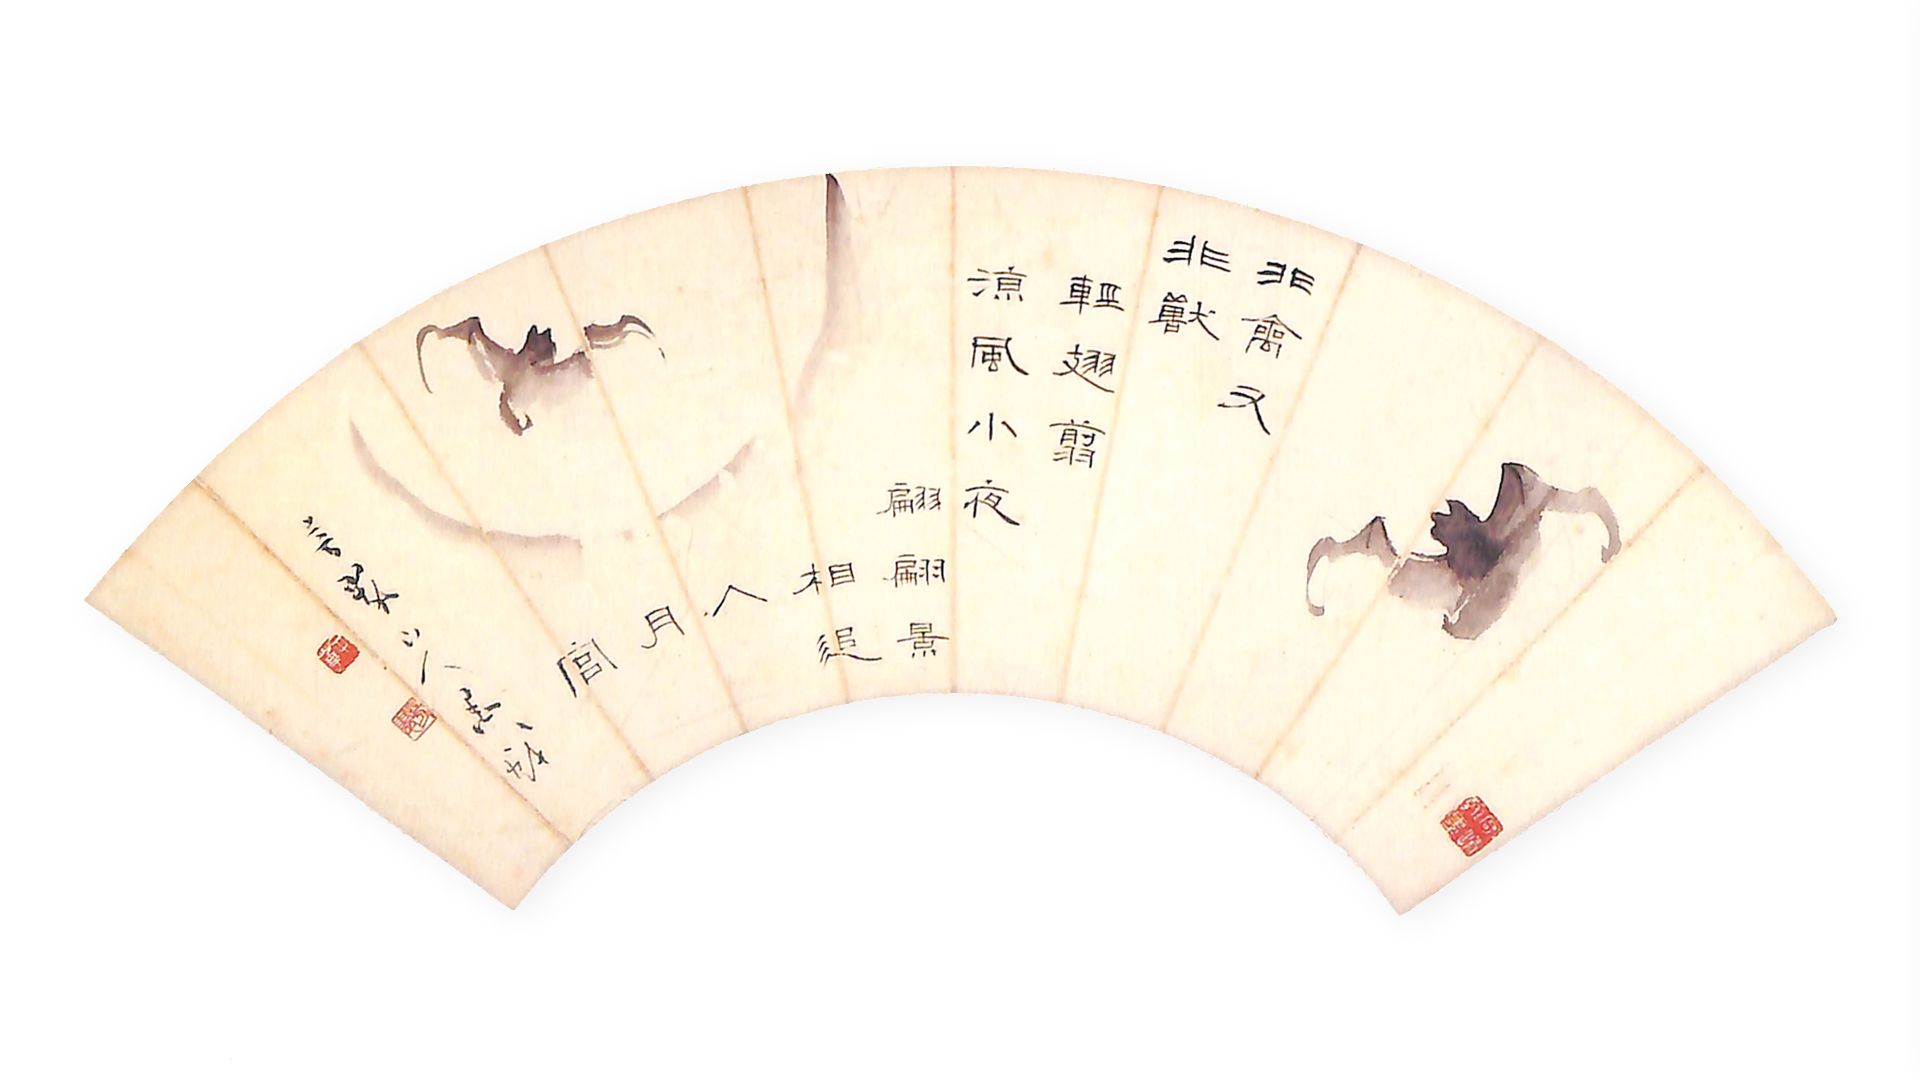 非禽又
非獸
輕翅翦
涼風小夜
翩翩景
相追
入
月
宮